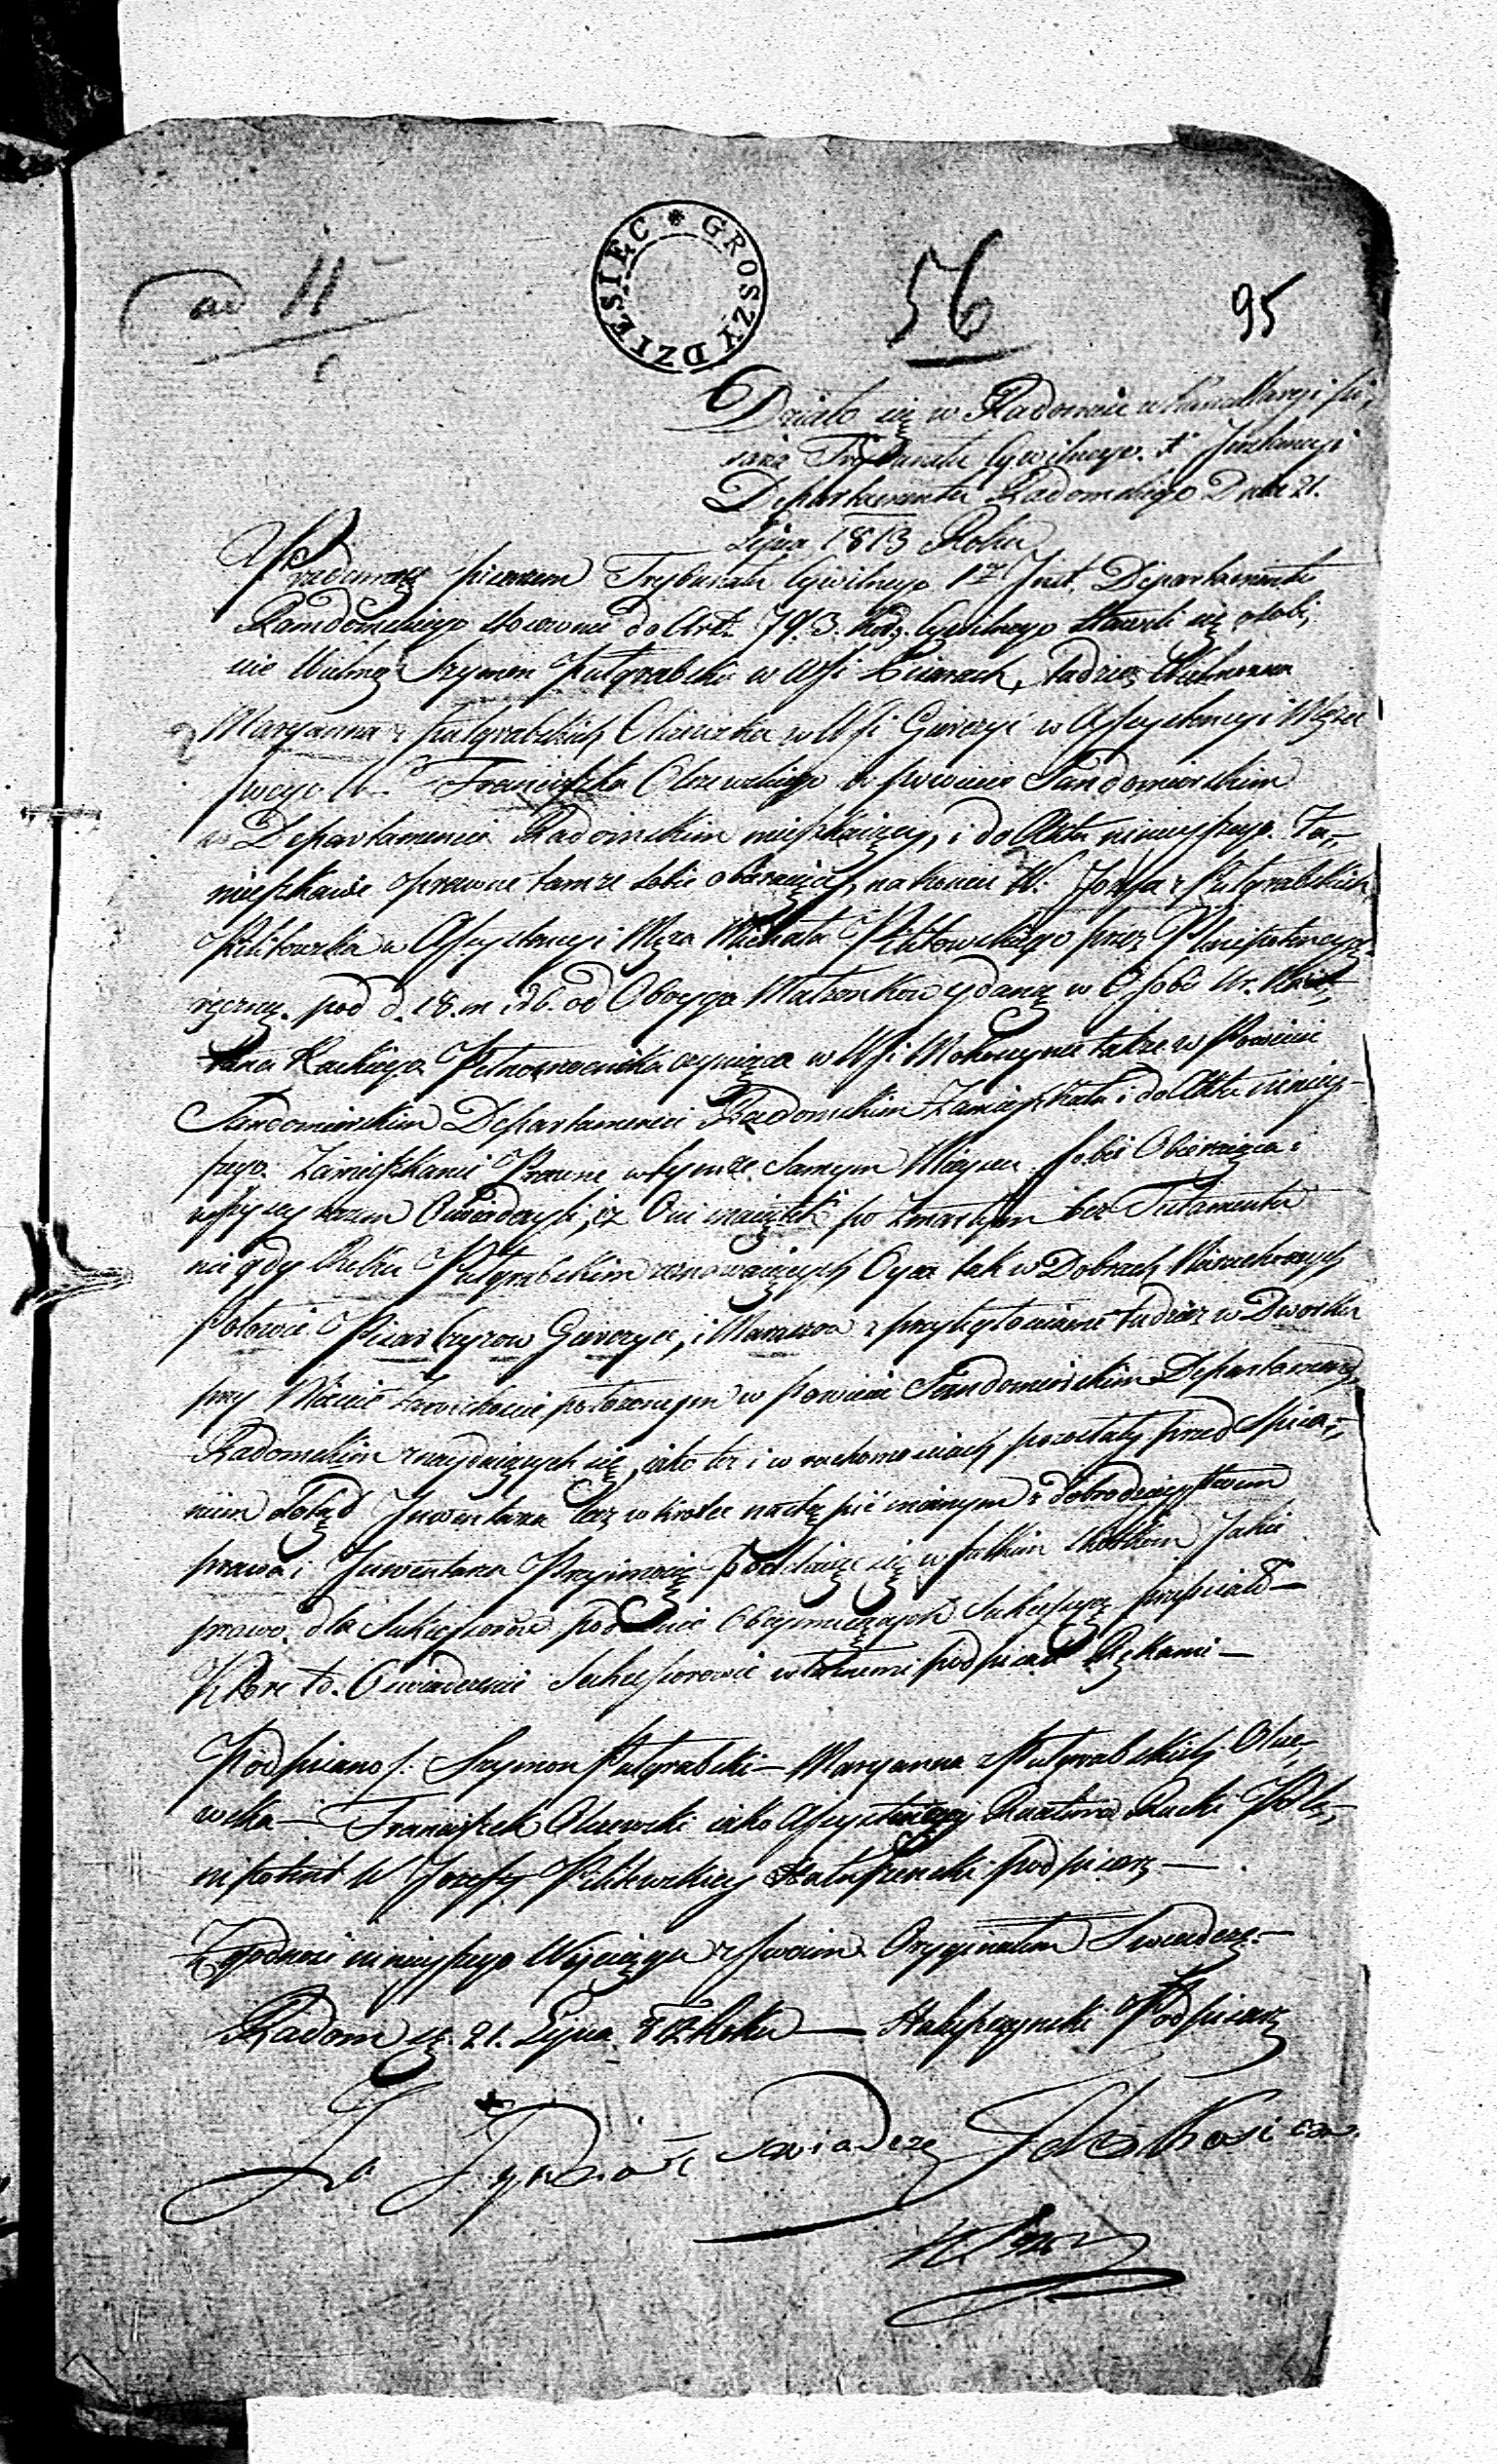 ad 11
GROSZY DZIESIĘC
56
95
Działo się w Radomiu w Kancellaryi Pi,
sarza Trybunału Cywilnego I Instancyi
Departamentu Radomskiego Dnia 21.
Lipca 1813 Roku
Przedemną pisarzem Trybunału Cywilnego 1z Inst. Departamentu
Ramdomskiego stosownie do Art. 793. Kod. Cywilnego stawili się osobi,
nie Szymon Pułgrabski w Wsi tudzież
Maryanna z Pułgrabskich Olszewska w Wsi Gierczyi w Assystencyi Męża
swego Franciszka Olszewskiego w powiecie Sandomirskim
w Departamencie Radomskim mieszkaiący, i do Aktu ninieyszego Za-
mieszkanie prawne tamże sobie obieraiący, nakoniec W. Jozefa z Pułgrabskich
Pilitowska w Assystencyi Męża Michała Pilitowskiego przez Plenipotencyą
ręczną pod d. 18. m. i R. od Oboyga Małżonkow wydaną w Osobie Ur.
Rackiego Pełnomocnika czyniąca w Wsi Mokoszynie także w Powiecie
Sandomirskim Departamencie Radomskim Zamieszkała i do Aktu niniey-
szego Zamieszkanie Prawne w tymże Samym Mieyscu sobie Obieraiąca:
wszyscy razem Oswiadczyli, iż Oni maiątek po zmarłym bez Testamentu
nie gdy Pułgrabskim Oycu tak w Dobrach Nieruchomych
Połowie Gierczyce, i z przyległosciami tudzież w Dworku
przy Miescie Zawichoście położonym w Powiecie Sandomirskim Departamencie
Radomskim znayduiących się, iako też i w ruchomosciach pozostały przed Spisa-
niem dotąd Inwentarza lecz wkrotce nastąpić maiącym z dobrodzieystwem
prawa i Inwentarza Przyimuią Poddaiąc się wszelkim skutkom Jakie
prawo dla Sukcessorow podobnie Obeymuiących Sukcessyą przepisało—
Ktore to Oswiadczenie Sukcessorowie własnemi podpisali Rękami—
Podpisano /: Szymon Pułgrabski— Maryanna z Pułgrabskich Olsze-
wska— Franciszek Olszewski iako Assystuiący Racki Ple-
nipotent W Jozefy Pilitowskiey podpisarz—
Zgodność ninieyszego Wyciągu z swoim Oryginałem Swiadczę—
Radom d. 21. Lipca Roku— Podpisarz
Za Zgodność swiadczę